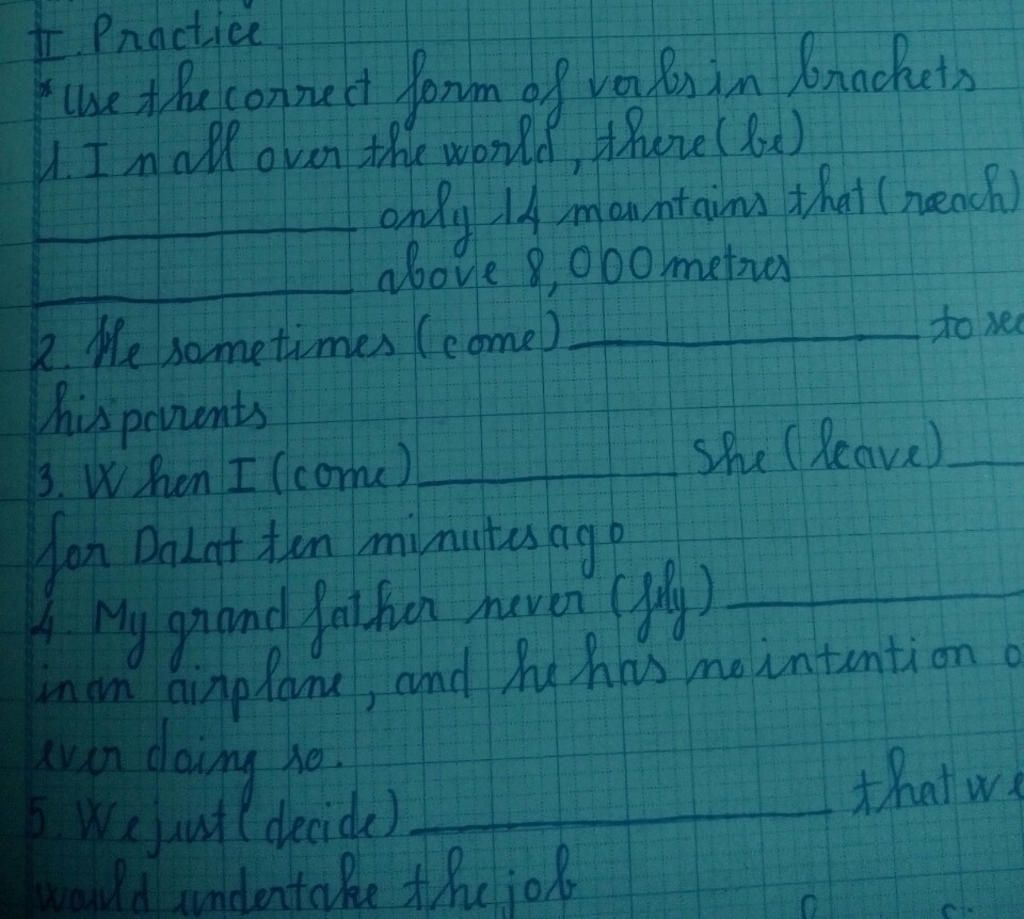 II. Practice
* Use the correct form of verbs in brackets
1. In all over the world, there (be)
____________ only 14 mountains that (reach)
____________ above 8,000 metres
2. He sometimes (come) ____________ to see
his parents
3. When I (come) ____________ she (leave) ____
for DaLat ten minutes ago
4. My grand father never (fly) ____________
in an airplane, and he has no intention o
ever doing so.
5. We just (decide) ____________ that we
would undertake the job